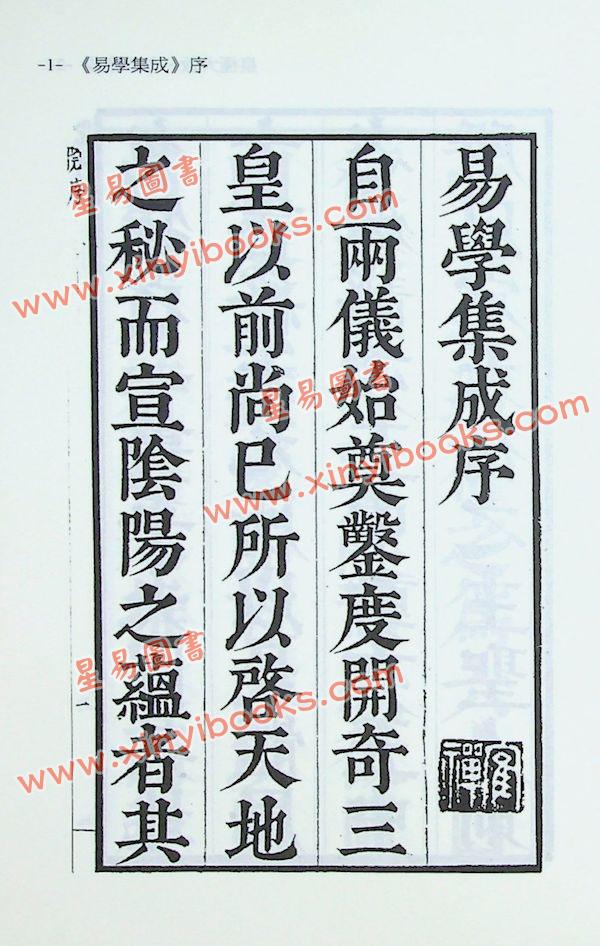 -1- 《易學集成》序
易學集成序
自兩儀始奠鑿度開奇三
皇以前尚已所以啓天地
之秘而宣陰陽之蘊者其
一
星易圖書
www.xinyibooks.com
星易圖書
www.xinyibooks.com
星易圖書
www.xinyibooks.com